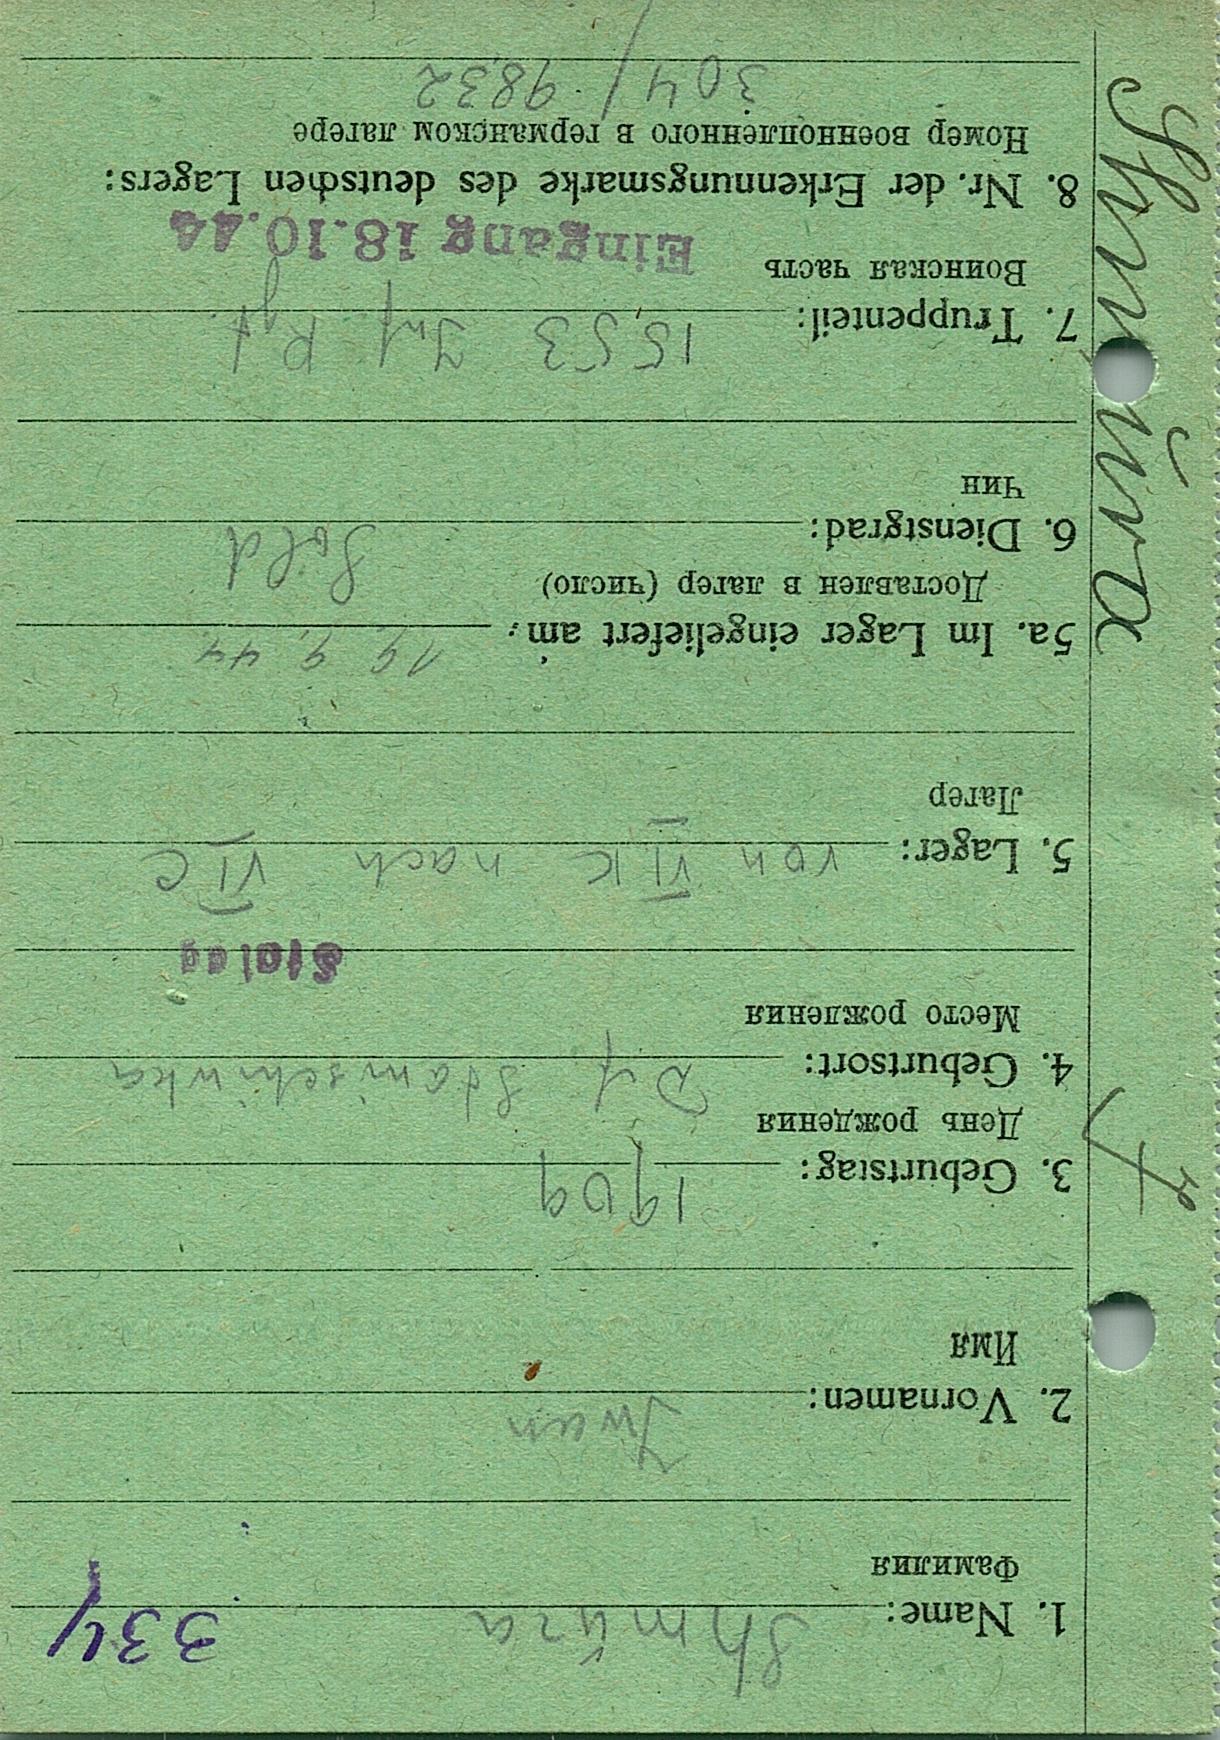 334
1. Name: Shmŭra
Фамилия
2. Vornamen: Iwan
Имя
3. Geburtstag: 1909
День рождения
4. Geburtsort: Df Stanischiwka
Место рождения
Stalag
5. Lager: von VI K nach VI C
Лагер
5a. Im Lager eingeliefert am: 19. 9. 44.
Доставлен в лагер (число)
6. Dienstgrad: Sold
Чин
7. Truppenteil: 1553 Inf Rgt.
Воинская часть
Eingang 18.10.44
8. Nr. der Erkennungsmarke des deutschen Lagers:
Номер военнопленного в германском лагере
304 / 9832
Shmŭra